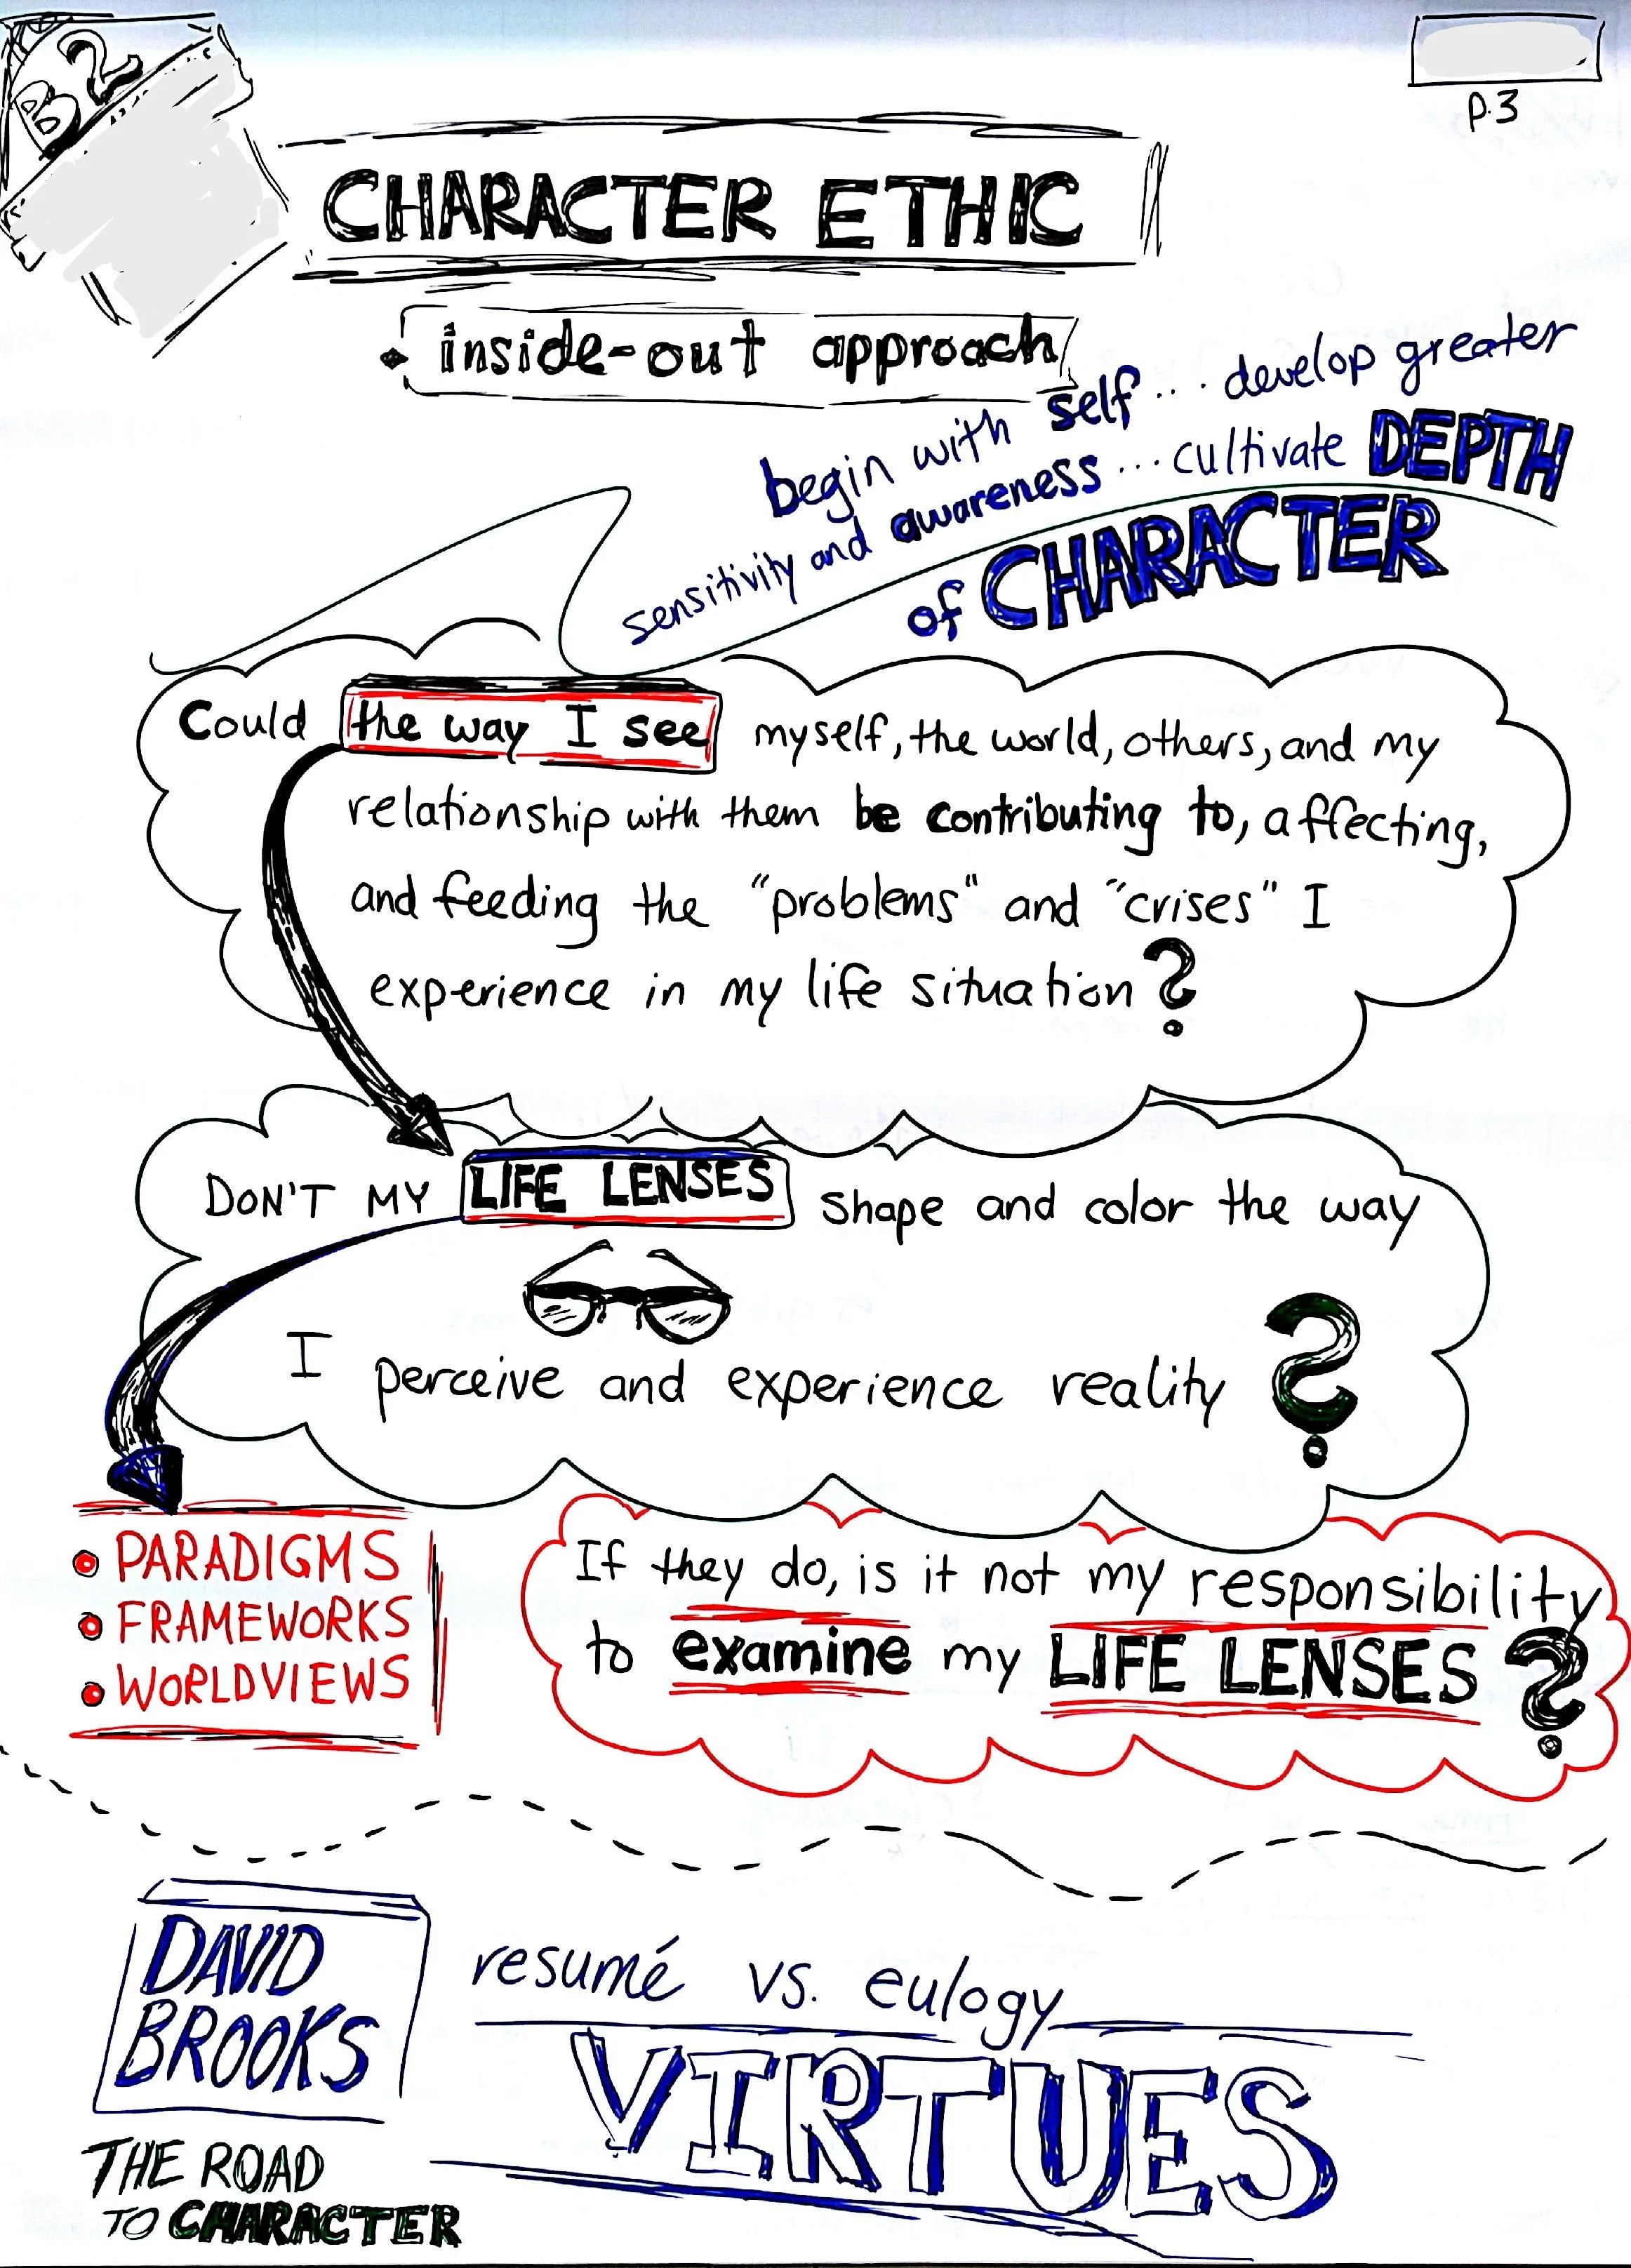 B2
p.3
CHARACTER ETHIC
inside-out approach
begin with self... develop greater
sensitivity and awareness... cultivate DEPTH
of CHARACTER
Could the way I see myself, the world, others, and my
relationship with them be contributing to, affecting,
and feeding the "problems" and "crises" I
experience in my life situation?
DON'T MY LIFE LENSES shape and color the way
I perceive and experience reality?
• PARADIGMS
• FRAMEWORKS
• WORLDVIEWS
If they do, is it not my responsibility
to examine my LIFE LENSES?
DAVID
BROOKS
THE ROAD
TO CHARACTER
resumé vs. eulogy
VIRTUES